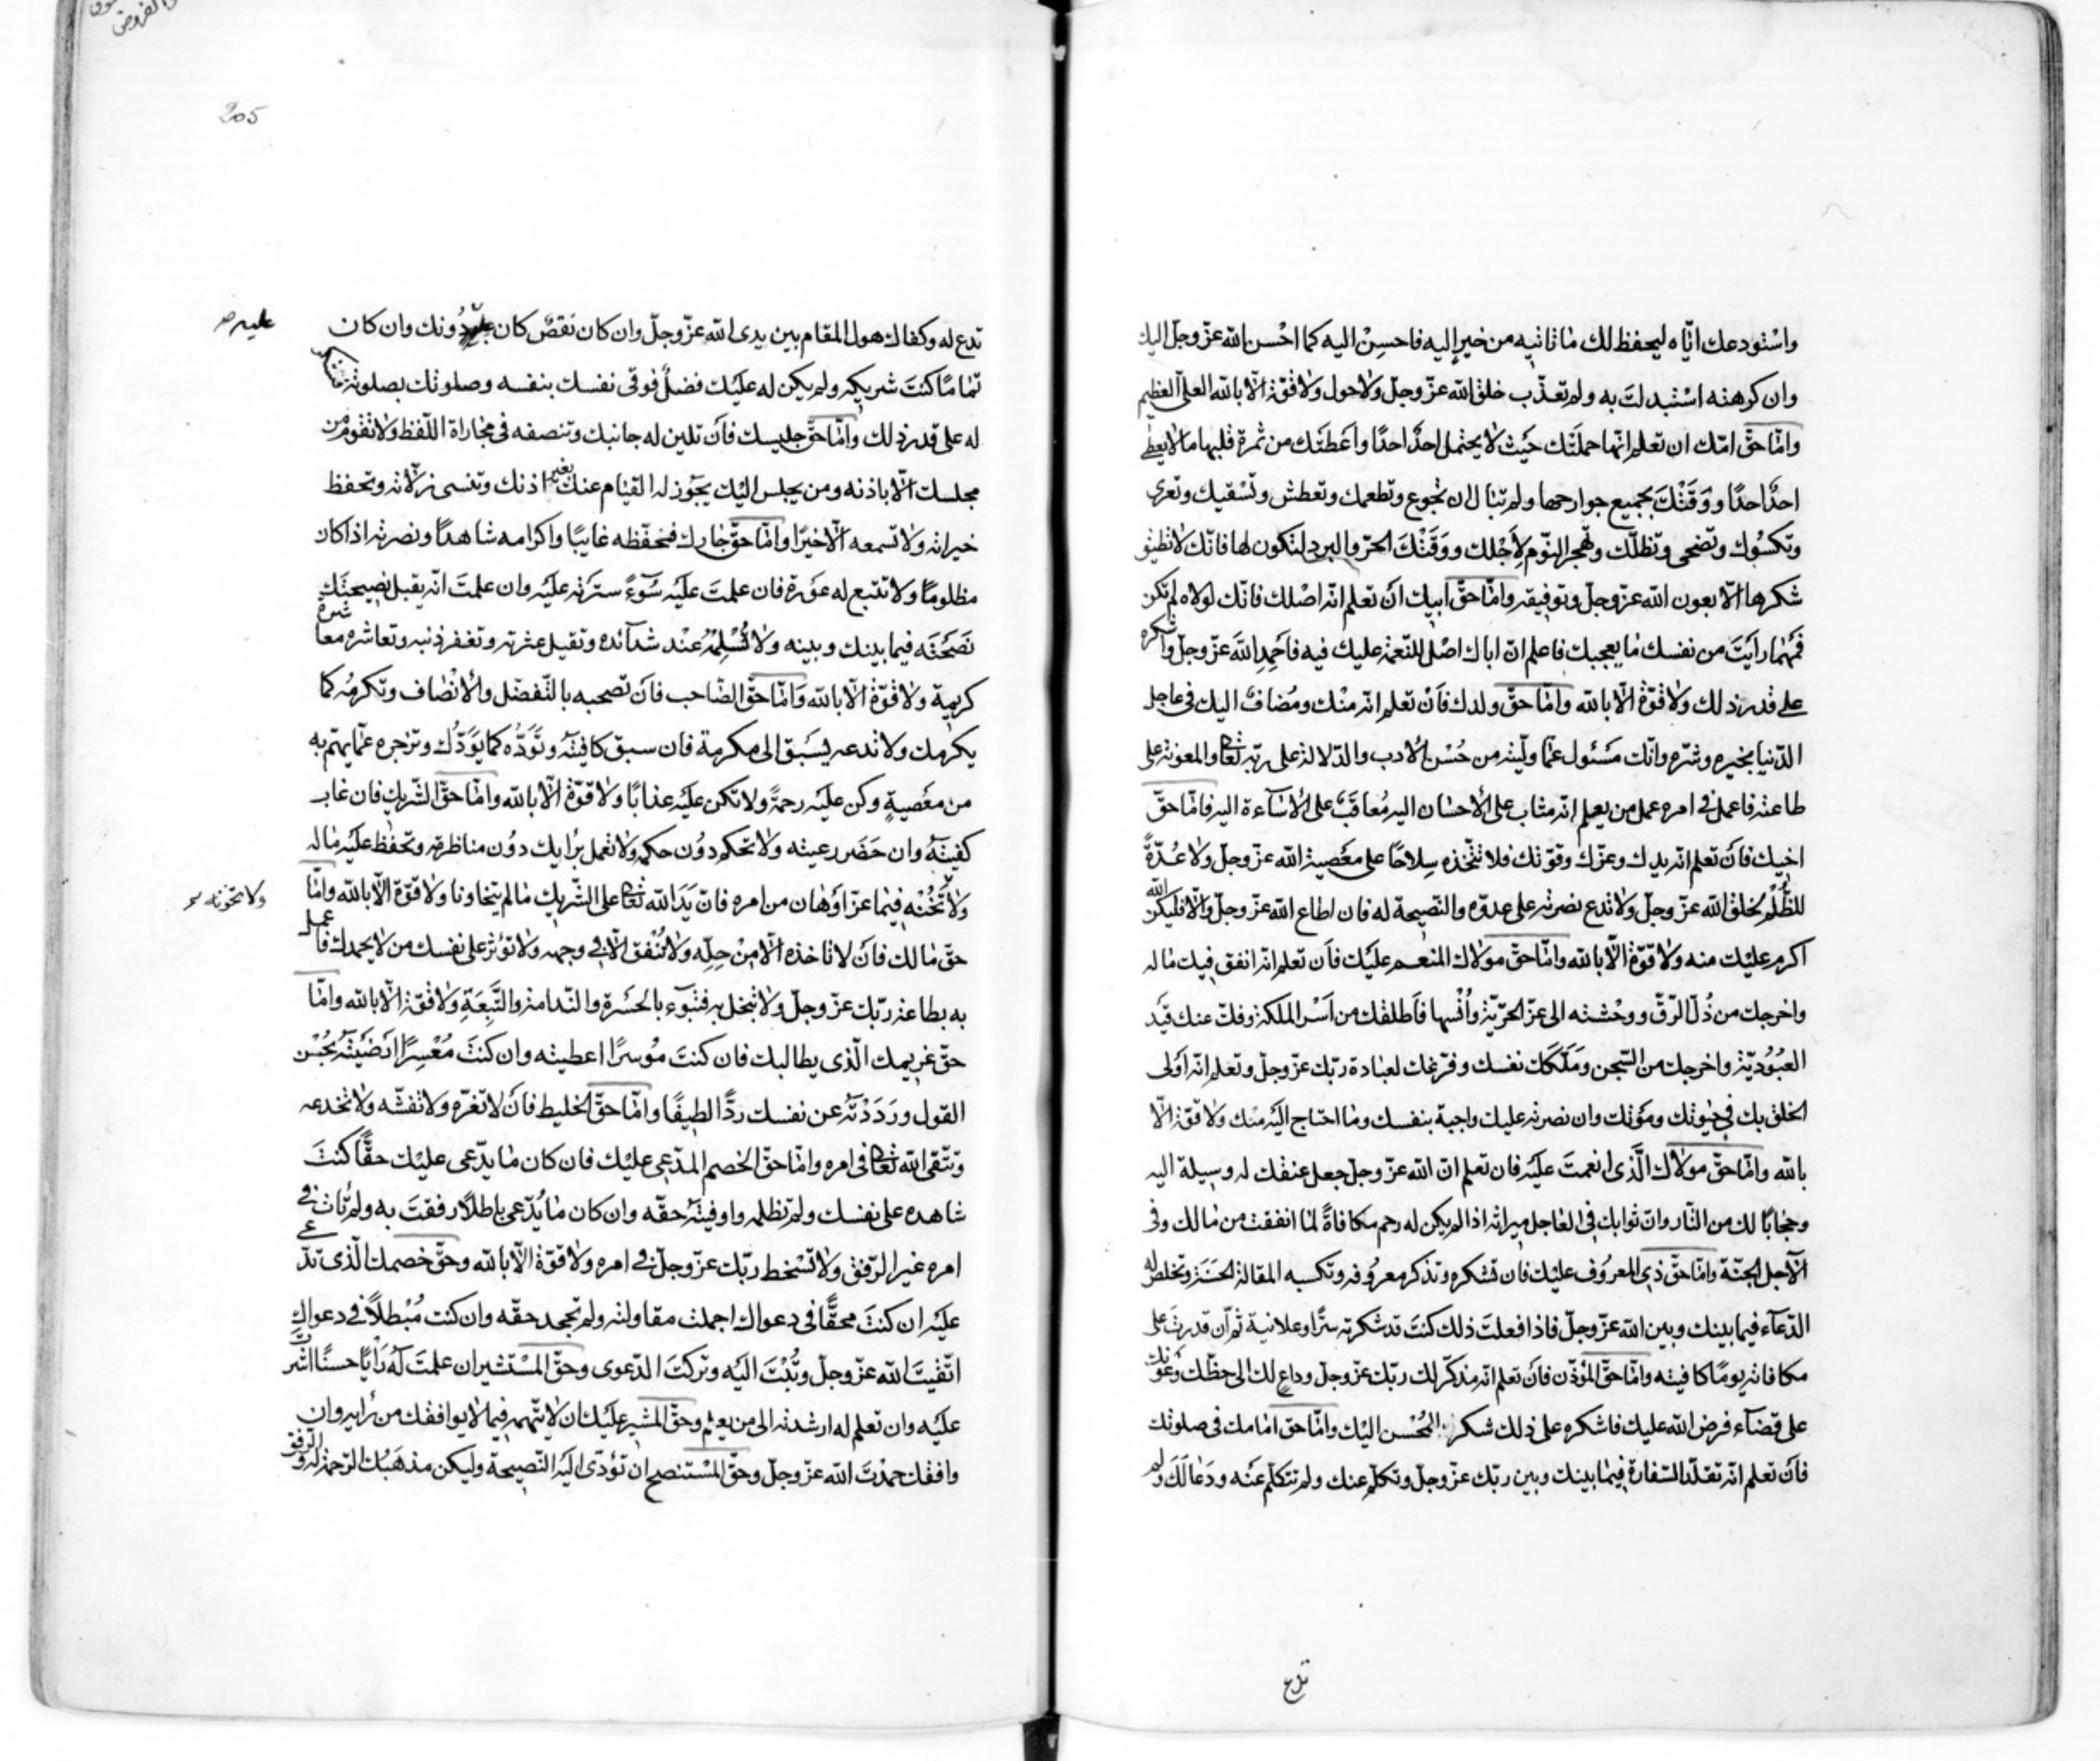 واسْتودعك ايّاه ليحفظ لك ما تاتيه من خير إليه فاحسِنْ اليه كما احْسن الله عزّ وجلّ اليك
وان كرهته استبدلتَ به ولم تعذّب خلق الله عزّ وجلّ ولاحول ولا قوّة الّا بالله العلى العظيم
وامّا حقّ امّك ان تعلم انّها حملَتْك حَيْث لا يحتمل احدٌ احدًا واَعْطَتك من ثمرة قلبها مالا يعطى
احدٌ احدًا ووَقَتْكَ بجميع جوارحها ولم تبال ان تجوع وتطعمك وتعطش وتَسْقيك وتعرى
وتكسُوك وتضحى وتظلّك وتهجر النّوم لِاَجْلك ووَقَتْكَ الحرّ والبرد لتكون لها فانّك لا تطيق
شكرها الّا بعون الله عزّ وجلّ وتوفيقه وامّا حقّ ابيك اَنْ تعلم انّه اصْلك فانّك لولاه لم تكن
فَمَهْما رَاَيْتَ من نفسك ما يعجبك فاعلم انّ اباك اصْل النّعمة عليك فيه فاحْمِدِ اللهَ عزّ وجلّ واشكره
على قدر ذلك ولا قوّة الّا بالله وامّا حقّ ولدك فاَنْ تعلم انّه منْك ومُضاف اليك فى عاجل
الدّنيا بخيره وشرّه وانّك مَسْئول عمّا ولّيته من حُسْن الادب والدّلالة على ربّه تعالى والمعونة على
طاعته فاعمل فى امره عمل من يعلم انّه مثاب على الاحسان اليه مُعاقَبٌ على الاساءة اليه فامّا حقّ
اخيك فاَنْ تعلم انّه يدك وعزّك وقوّتك فلا تتّخذه سِلاحًا على معْصية الله عزّ وجلّ ولا عُدّةً
للظُّلْم لخلق الله عزّ وجلّ ولا تدع نصرته على عدوّه والنّصيحة له فان اطاع الله عزّ وجلّ والّا فليكن الله
اكرم عليك منه ولا قوّة الّا بالله وامّا حقّ مولاك المنعم عليك فاَن تعلم انّه انفق فيك ماله
واخرجك من ذُلّ الرّقّ ووحْشته الى عزّ الحرّيّة واُنْسِها فاَطلقك من اَسْر الملكة وفكّ عنك قَيْد
العبُوُديّة واخرجك من السّجن ومَلّكك نفسك وفرّغك لعبادة ربّك عزّ وجلّ وتعلم انّه اَوْلى
الخلق بك فى حيٰوتك وموْتك وان نصرته عليك واجبة بنفسك وما احتاج اليْه منك ولا قوّة الّا
بالله وامّا حقّ مولاك الّذى انعمتَ عليْه فان تعلم انّ الله عزّ وجلّ جعل عتقك له وسيلة اليه
وحجابًا لك من النّار وانّ ثوابك فى العاجل ميراثه اذا لم يكن له رحم مكافاةً لما انفقت من مالك وفى
الآجل الجنّة وامّا حقّ ذى المعرُوف عليْك فان تشكره وتذكر معروُفه وتكسبه المقالة الحَسَنَة وتخلص له
الدّعآء فيما بينك وبين الله عزّ وجلّ فاذا فعلتَ ذلك كنتَ قد شكرته سرًّا وعلانية ثم ان قدرتَ على
مكافاته يومًا كافيته وامّا حقّ المؤذّن فاَنْ تعلم انّه مذكّر لك ربّك عزّ وجلّ وداعٍ لك الى حظّك وعَونك
على قضآء فرض الله عليك فاشكره على ذلك شكر المُحْسن اليْك وامّا حق امامك فى صلوتك
فاَنْ تعلم انّه تقلّد السّفارة فيما بينك وبين ربّك عزّ وجلّ وتكلّم عنك ولم تتكلّم عنْه ودَعا لَكَ ولم
تدع
205
تدع له وكفاك هول المقام بين يدى الله عزّ وجلّ وان كان نَقصٌ كان عليه دُونك وان كان
عليه صح
تمامًا كنتَ شريكه ولم يكن له عليْك فضلٌ فوقى نفسك بنفسه وصلوتك بصلوته
له على قدر ذلك وامّا حقّ جليسك فاَنْ تلين له جانبك وتنصفه فى مجاراة اللّفظ ولا تقوم من
مجلسك الّا باذنه ومن يجلس اليْك يجوز له القيام عنك بغير اذنك وتنسى زلّاته وتحفظ
خيراته ولا تسمعه الّا خيرًا وامّا حقّ جارك فتحفظه غايبًا واكرامه شاهدًا ونصرته اذا كان
مظلومًا ولا تتبع له عوْرة فان علمتَ عليْه سُوءً سترْته عليْه وان علمتَ انّه يقبل نصيحتَك
نَصَحْتَه فيما بينك وبينه ولا تُسْلِمْهُ عنْد شدآئده وتقيل عثرته وتغفر ذنبه وتعاشره معاشرة
كريمة ولا قوّة الّا بالله وَامّا حقّ الصّاحب فاَنْ تصحبه بالتّفضّل والانْصاف وتكرمُه كما
يكرمك ولا تدعه يَسْبَق الى مكرمة فان سبق كافيتَه وتَوَدّه كما يَوَدّك وتزجره عمّا يهتم به
من معْصيةٍ وكن عليْه رحمةً ولا تكن عليْه عذابًا ولا قوّة الّا بالله وامّا حقّ الشّريك فان غاب
كفيتَهُ وان حَضَر رعيته ولا تحكم دوُن حكمه ولا تعمل برايك دوُن مناظرته وتحفظ عليْه ماله
ولا تَخُنْه فيما عزّ اوْ هان من امره فانّ يَدَ الله تعالى على الشّريك مالم يتخاونا ولا قوّة الّا بالله وامّا
ولا تخونه
حقّ مالك فاَنْ لا تاخذه الّا مِنْ حِلِّه ولا تُنْفق الّا فى وجهه ولا تؤثر على نفسك من لا يحمدك فاعمل
به بطاعة ربّك عزّ وجلّ ولا تبخل به فتبوء بالحَسْرة والنّدامة والتَّبِعَةِ ولا قوّة الّا بالله وامّا
حقّ غريمك الّذى يطالبك فان كنتَ موُسرًا اعطيته وان كنتَ مُعْسِرًا اَرْضَيْتَهُ بحُسْن
القول ورَدَدْتَهُ عن نفسك ردًّا لطيفًا وامّا حقّ الخليط فاَنْ لا تغرّه ولا تغشّه ولا تخدعه
وتتّقى الله تعالى فى امره وامّا حقّ الخصم المدّعى عليْك فان كان ما يدّعى عليْك حقًّا كنتَ
شاهده على نفسك ولم تظلمه واوفيتَهُ حقّه وان كان ما يُدّعى باطلًا رفقتَ به ولم تات فى
امره غير الرّفق ولا تسْخط ربّك عزّ وجلّ فى امره ولا قوّة الّا بالله وحقّ خصمك الّذى تدّعى
عليْه ان كنتَ محقًّا فى دعواك اجملت مقاولته ولم تجحد حقّه وان كنت مُبْطلًا فى دعواك
اتّقيتَ الله عزّ وجلّ وتُبْتَ اليْه وتركتَ الدّعوى وحقّ المسْتشير ان علمتَ له رَاْيًا حسنًا اشرت
عليْه وان تعلم له ارشدته الى من يعلم وحقّ المشير عليْك ان لا تتّهمه فيما لا يوافقك من رايه وان
وافقك حمدْتَ الله عزّ وجلّ وحقّ المسْتنصح ان تؤدّى اليْه النّصيحة وليكن مذهَبُك الرّحمة له والرّفق